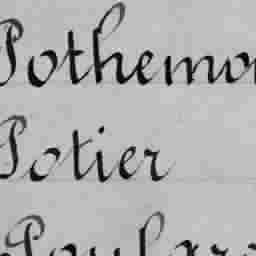 Pothemo
Potier